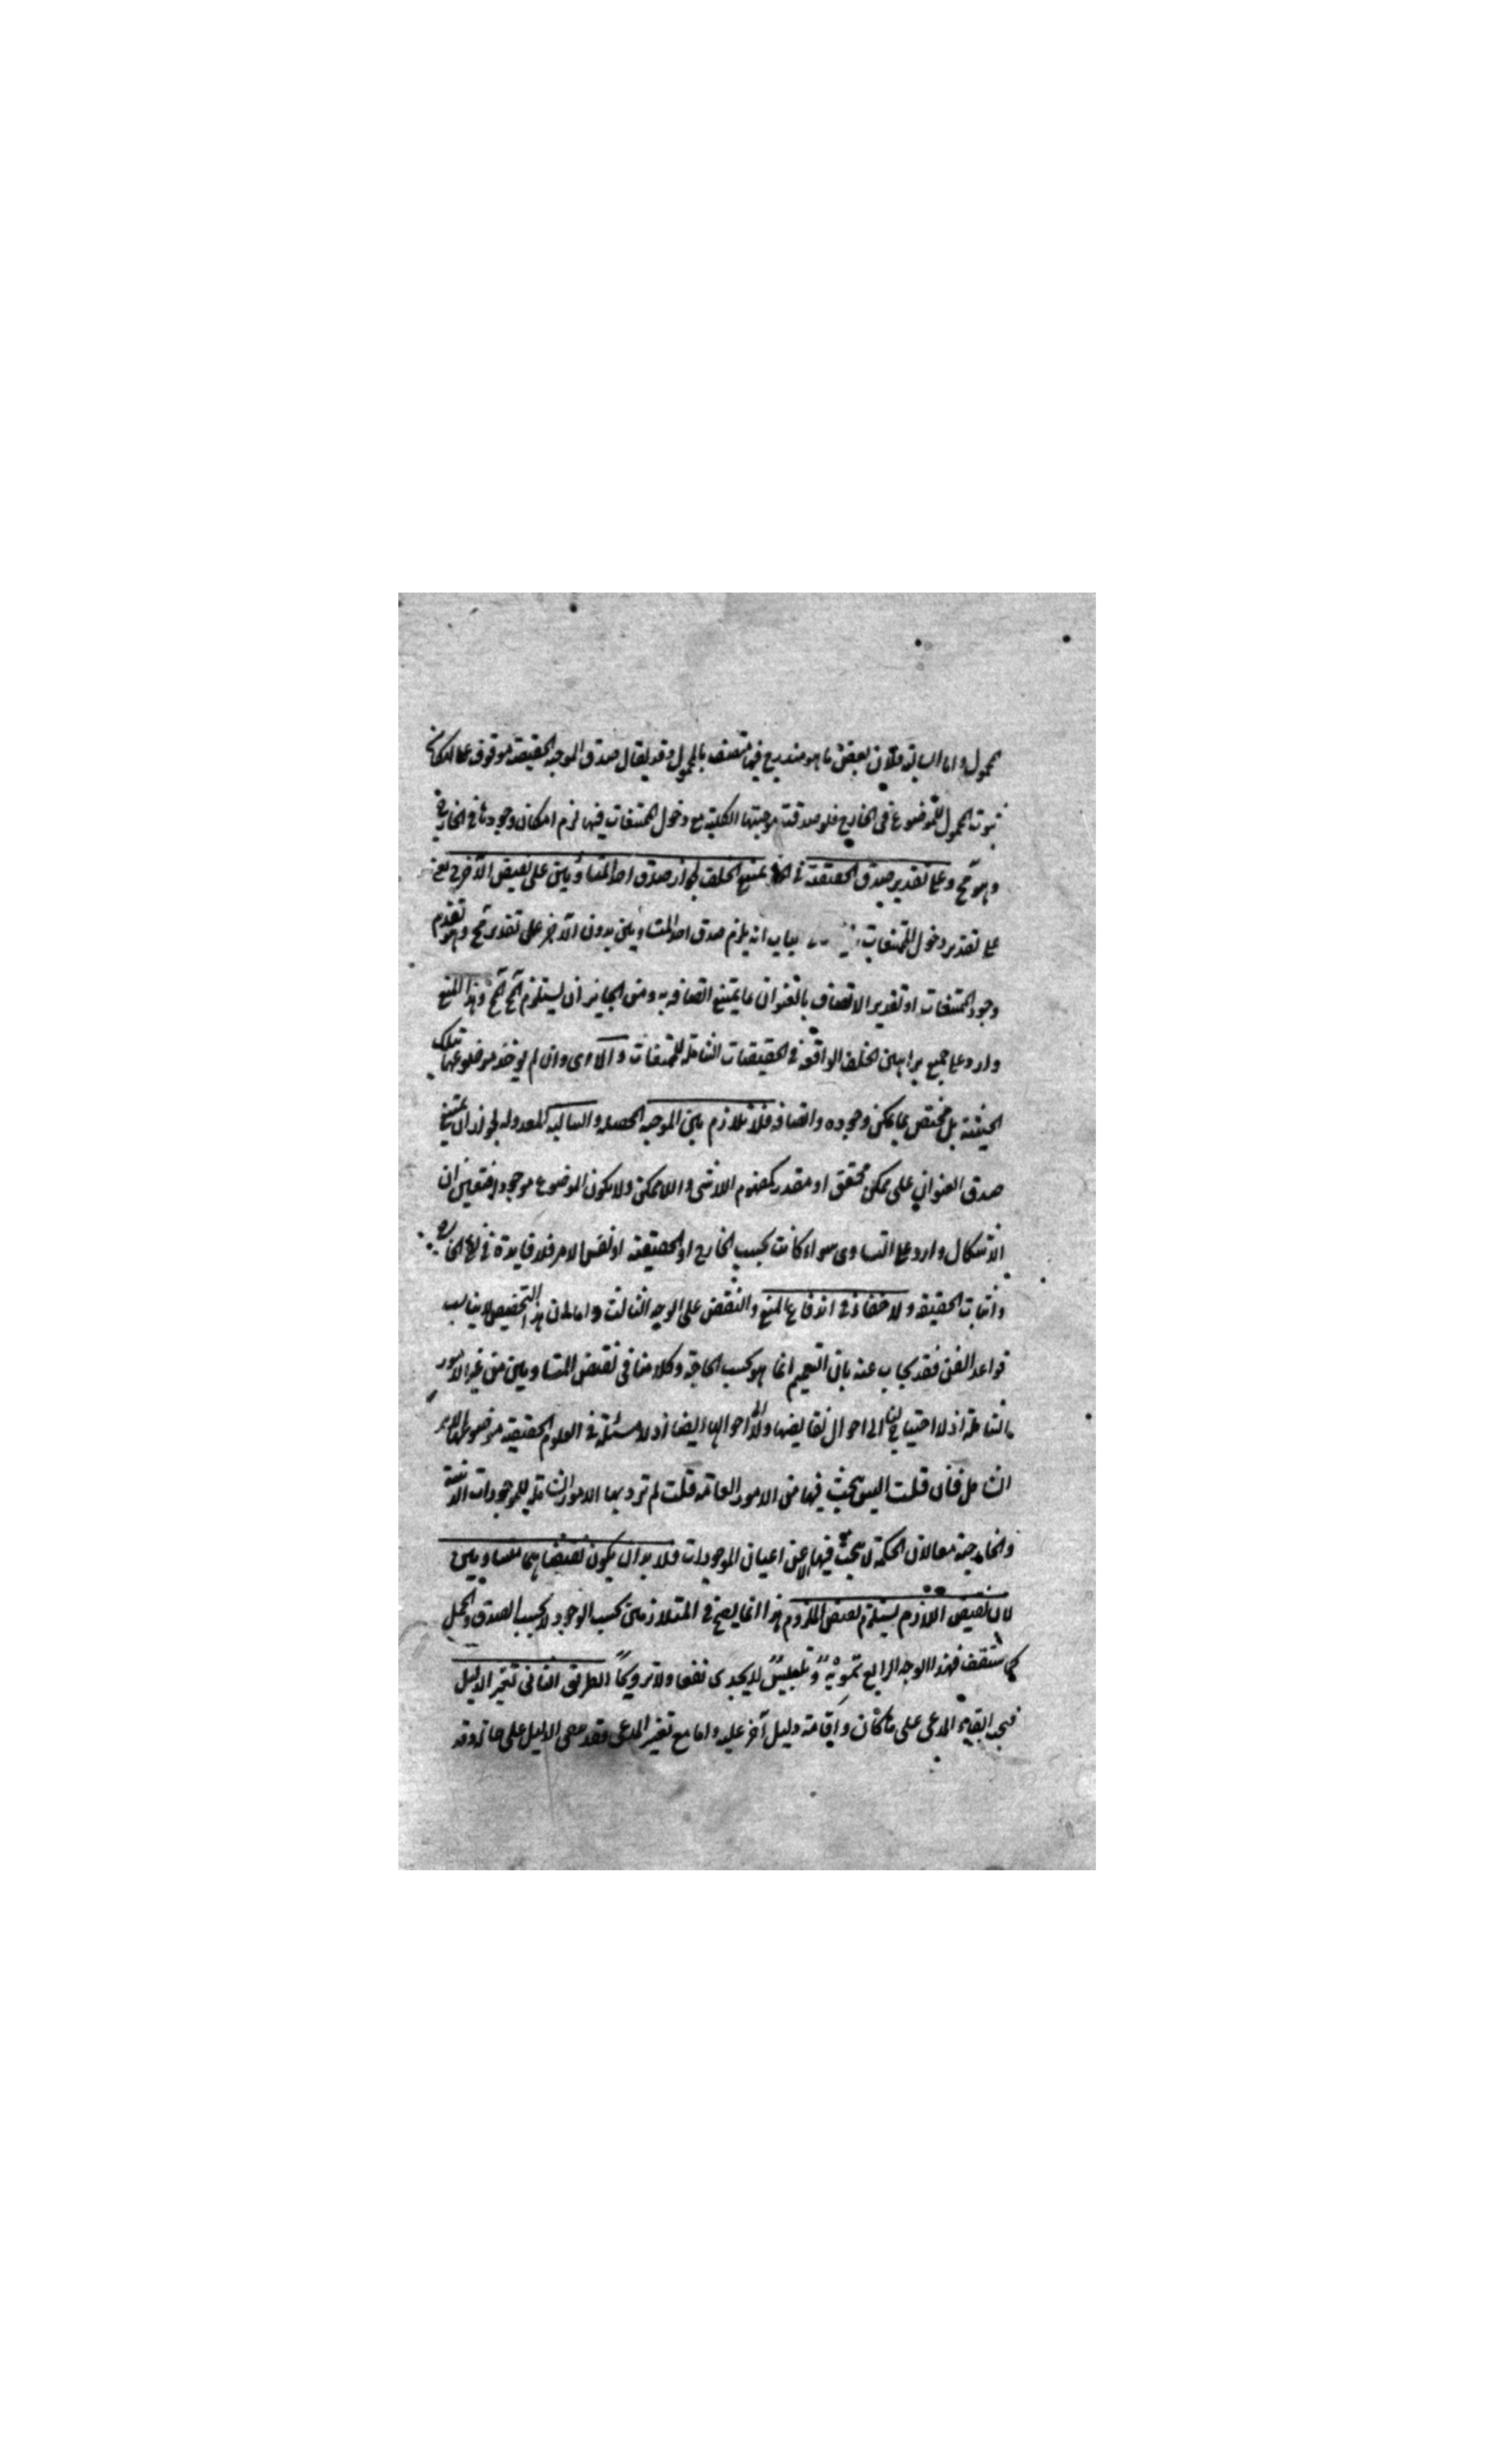 المحمول واما السالبة فلان بعض ما هو مندرج فيها متصف بالمحمول وقد يقال صدق الموجبة الحقيقية موقوف على امكان
ثبوت المحمول للموضوع في الخارج فلو صدقت موجبتها الكلية مع دخول الممتنعات فيها لزم امكان وجودها في الخارج
وهو مح وعلى تقدير صدق الحقيقة في يمتنع الخلف لجواز صدق احد المتساويين على نقيض الآخر يعني
على تقدير دخول الممتنعات يجاب انه يلزم صدق احد المتساويين بدون الآخر على تقدير مح وهو تقدير
وجود الممتنعات او تقدير الاتصاف بالعنوان بما يمتنع اتصافه به ومن الجايز ان يستلزم المح المح وهذا المنع
وارد على جميع براهين الخلف الواقعة في الحقيقيات الشاملة للممتنعات والا اى وان لم يؤخذ موضوعها بتلك
الحيثية بل مختص بما يمكن وجوده واتصافه فلا تلازم بين الموجبة المحصلة والسالبة المعدولة لجواز ان يمتنع
صدق العنوان على ممكن محقق او مقدر كمفهوم اللاشئ واللاممكن ولا يكون الموضوع موجودا فتعين ان
الاشكال وارد على التساوى سواء كانت بحسب الخارج او الحقيقة او نفس الامر فلا فايدة في نفى الخارجية
واثبات الحقيقة ولا خفاء في اندفاع المنع والنقض على الوجه الثالث واما ان هذا التخصيص لا يناسب
قواعد الفن فقد يجاب عنه بان التعميم انما هو بحسب الحاجة وكلامنا في نقيض المتساويين من غير الامور
الشاملة اذ لا احتياج لنا الى احوال نقايضها ولا الى احوالها ايضا اذ لا مسئلة في العلوم الحقيقية موضوعها الامر
الشامل فان قلت اليس يبحث فيها من الامور العامة قلت لم ترد بها الامور الشاملة للموجودات الذهنية
والخارجية معا لان الحكمة لا يبحث فيها الا عن اعيان الموجودات فلا بد ان يكون نقيضاهما متساويين
لان نقيض اللازم يستلزم نقيض الملزوم هذا انما يصح في المتلازمين بحسب الوجود لا بحسب الصدق والحمل
كما ستقف فهذا الوجه الرابع تمويه وتلبيس لا يجدى نفعا ولا ترويجا الطريق الثانى تغيير الدليل
فيجب ابقاء المدعى على ما كان واقامة دليل آخر عليه واما مع تغيير المدعى فقد مضى الدليل على حاله وقد